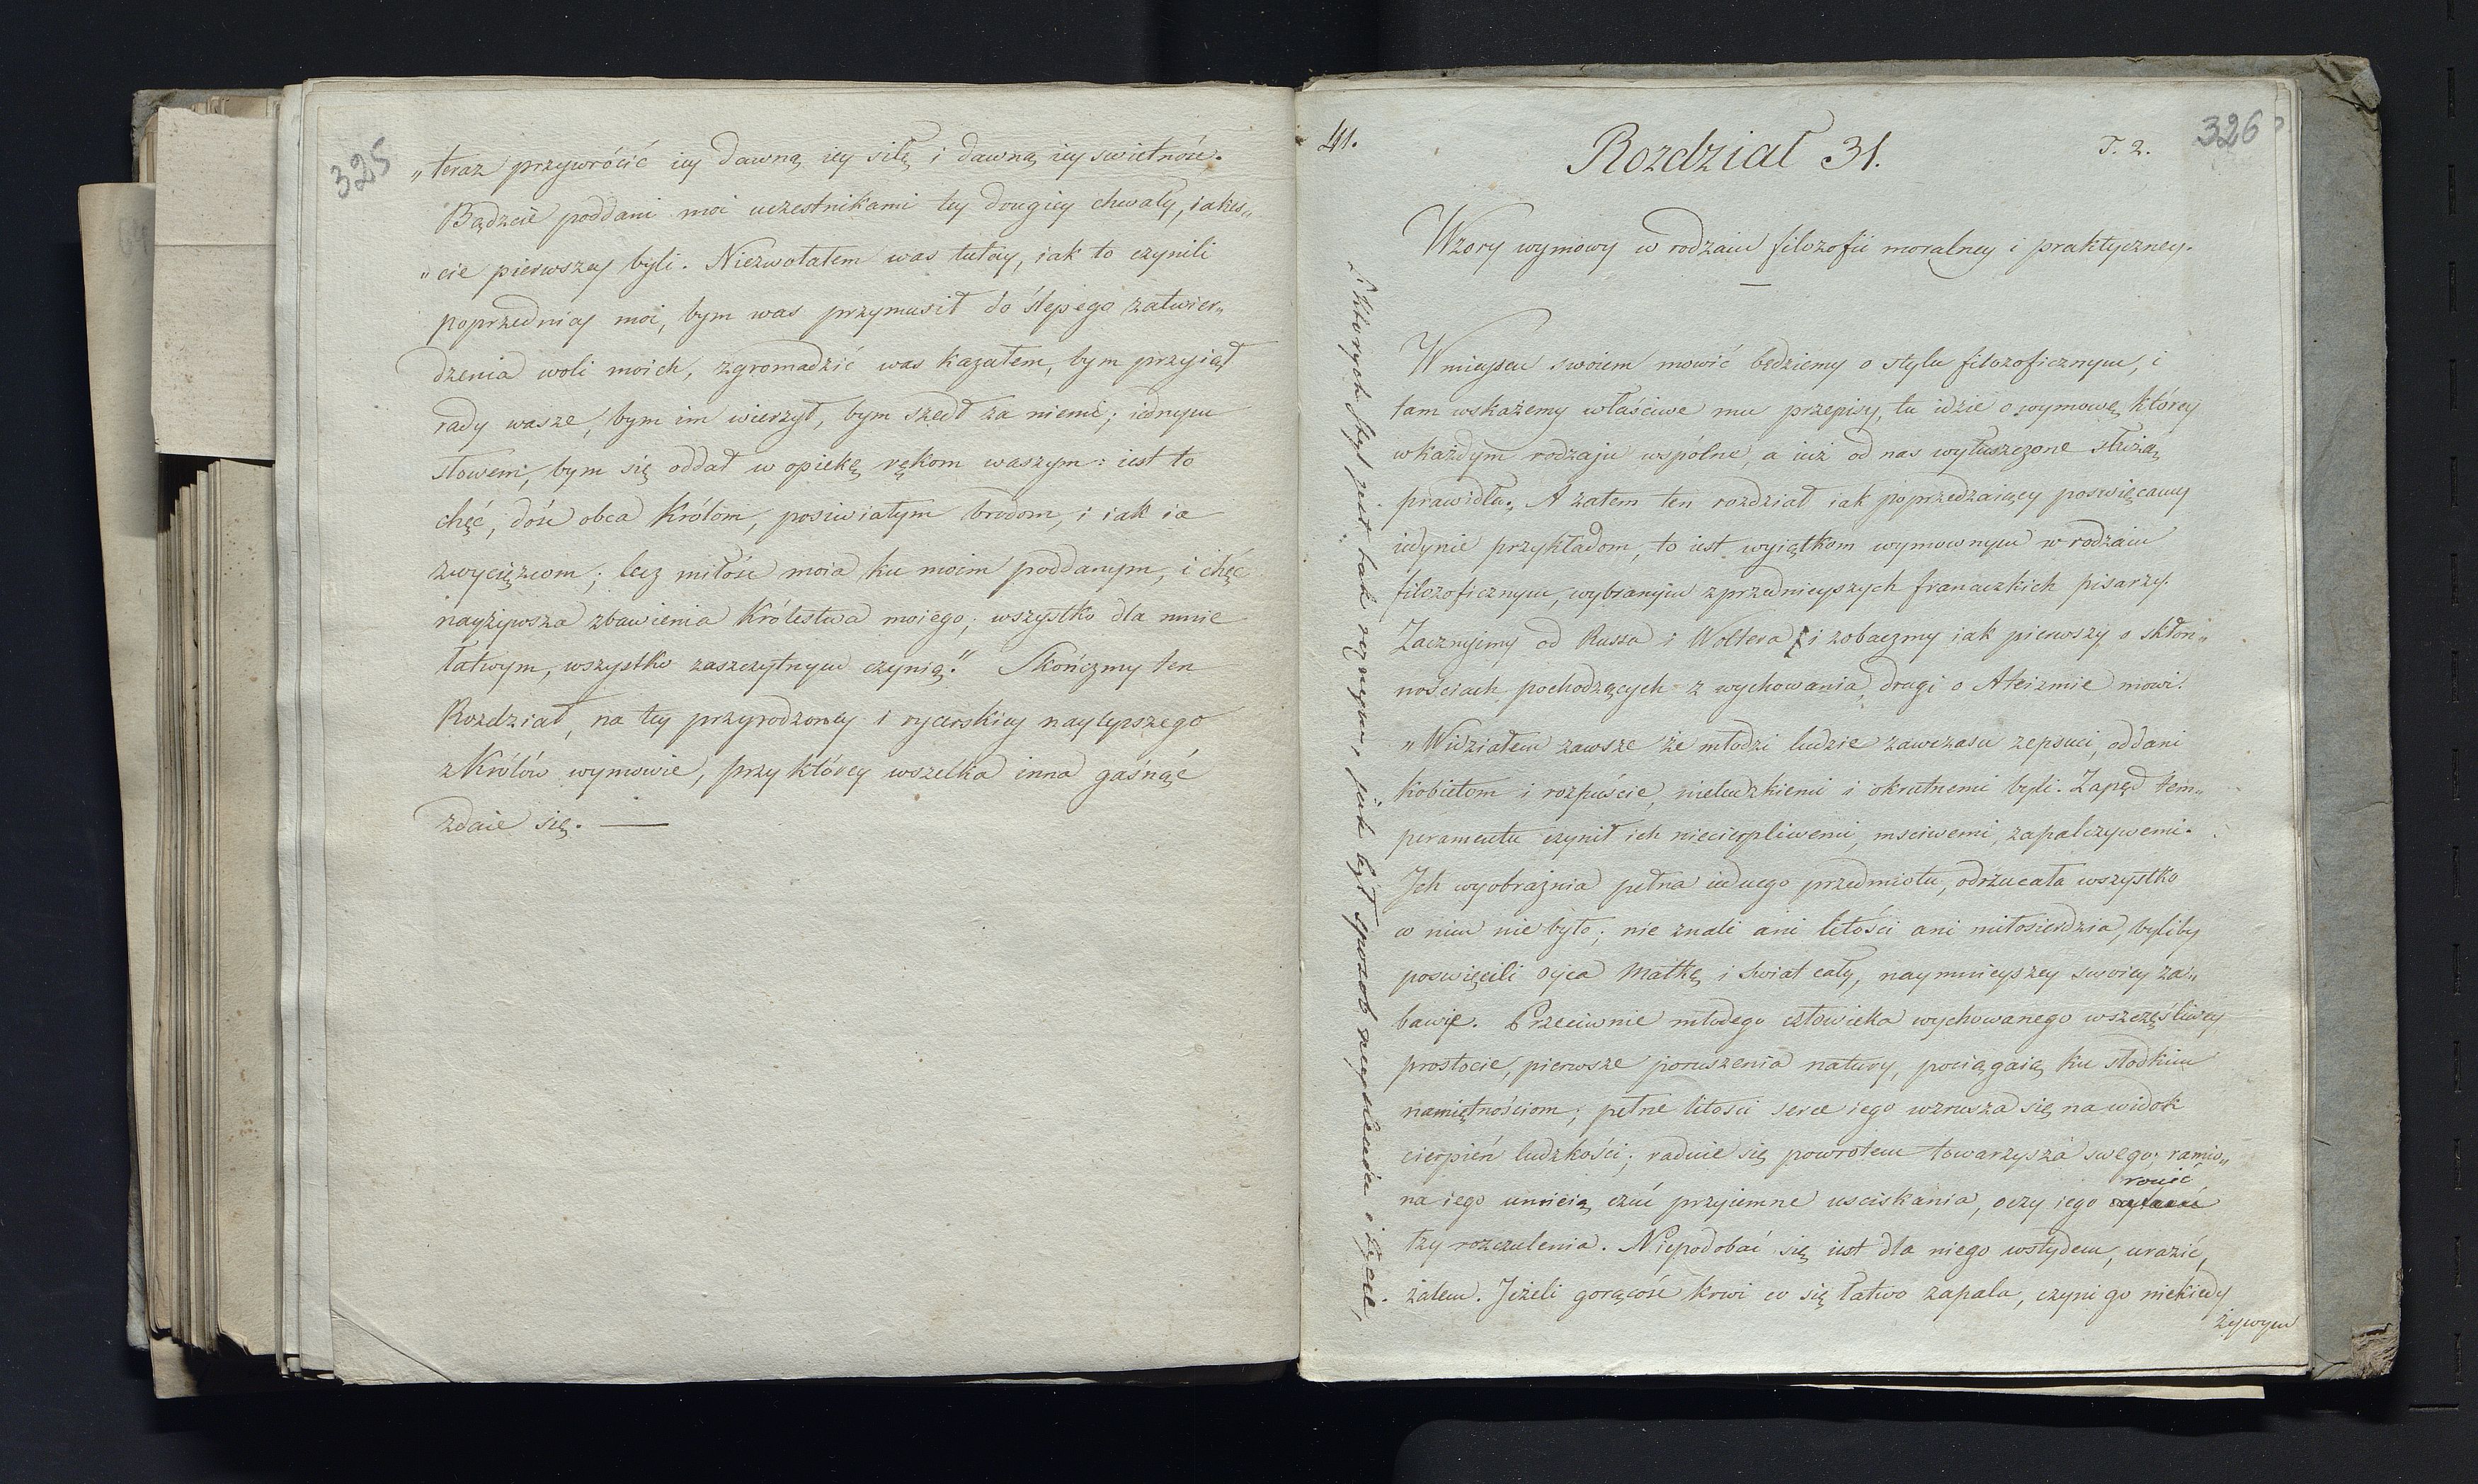 325
„teraz przywrócić iey dawną iey siłę i dawną iey swietność.
Bądzcie poddani moi uczestnikami tey drugiey chwały, iakeś„
„cie pierwszey byli. Niezwołałem was tutay, iak to czynili
poprzednicy moi, bym was przymusił do ślepego zatwier„
dzenia woli moich, zgromadzić was kazałem, bym przyiął
rady wasze, bym im wierzył, bym szedł za niemi; iednym
słowem, bym się oddał w opiekę rękom waszym: iest to
chęć, dość obca Królom, posiwiałym brodom, i iak ia
zwycięzcom; lecz miłość moia ku moim poddanym, i chęć
nayżywsza zbawienia Królestwa moiego; wszystko dla mnie
łatwym, wszystko zaszczytnym czynią." Skończmy ten
Rozdział, na tey przyrodzoney i rycerskiey naylepszego
z Królów wymowie, przy którey wszelka inna gaśnąć
zdaie się. —
41.
Rozdział 31.
T. 2.
326
Wzory wymowy w rodzaiu filozofii moralney i praktyczney.
W mieyscu swoiem mowić będziemy o stylu filozoficznym, i
tam wskażemy właściwe mu przepisy, tu idzie o wymowę, którey
w każdym rodzaju wspólne, a iuż od nas wyłuszczone służą
prawidła. A zatem ten rozdział iak poprzedzaiący poswięcamy
iedynie przykładom, to iest wyiątkom wymownym w rodzaiu
filozoficznym, wybranym z przednieyszych francuzkich pisarzy.
Zacznijmy od Russa i Woltera i zobaczmy iak pierwszy o skłon„
nościach pochodzących z wychowania, drugi o Ateizmie mowi.
„Widziałem zawsze że młodzi ludzie zawczasu zepsuci, oddani
kobietom i rozpuście, nieludzkiemi i okrutnemi byli. Zapęd tem„
peramentu czynił ich niecierpliwemi, msciwemi, zapalczywemi.
Ich wyobraźnia pełna iednego przedmiotu, odrzucała wszystko
co nim nie było; nie znali ani litości ani miłosierdzia, byliby
poswięcili Ojca Matkę i świat cały, naymnieyszey swoiey za„
bawie. Przeciwnie młodego człowieka wychowanego w szczęśliwey
prostocie, pierwsze poruszenia natury, pociągaią ku słodkim
namiętnościom; pełne litości serce iego wzrusza się na widok
cierpień ludzkości; raduie się powrotem towarzysza swego, ramio„
na iego umieią czuć przyiemne usciskania, oczy iego
ronić
łzy rozczulenia. Niepodobać się iest dla niego wstydem, urazić,
żalem. Jeżeli gorącość krwi co się łatwo zapala, czyni go niekiedy
żywym
których styl jest tak rożnym, jak był sposob myślenia i życie,